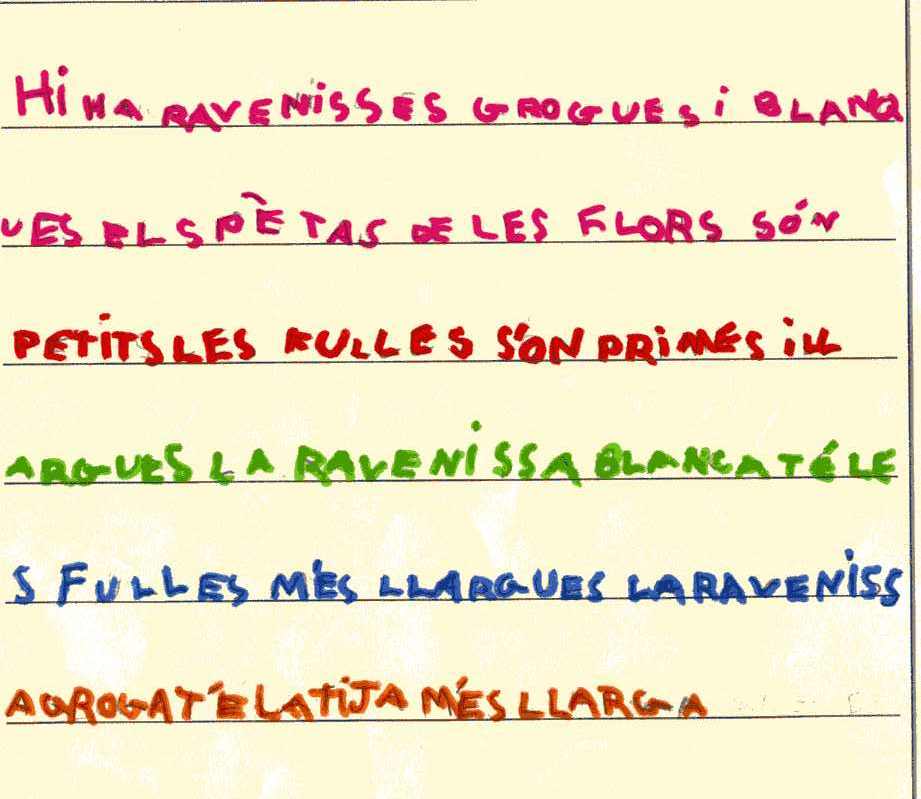 Hi HA RAVENiSSES GROGUES i BLANQ
UES ELS PÈTAS DE LES FLORS SÓN
PETiTS LES FULLES SÓN PRiMES i LL
ARGUES LA RAVENiSSA BLANCA TÉ LE
S FULLES MÉS LLARGUES LA RAVENiSS
A GROGA TÉ LA TiJA MÉS LLARGA